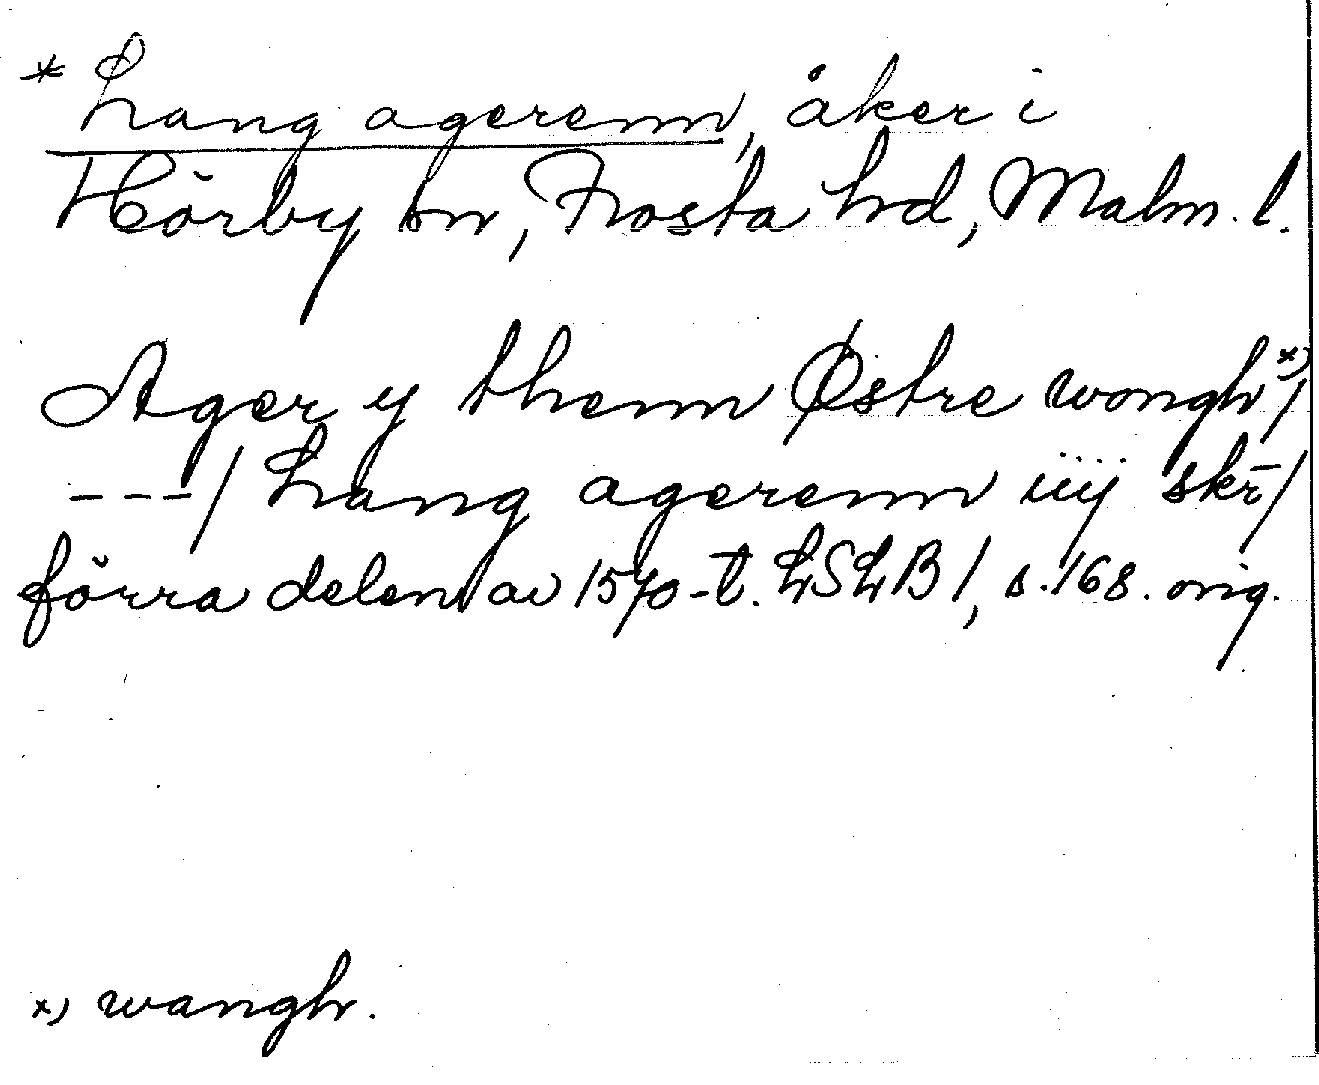 * Lang agerenn, åker i
Hörby sn, Frosta hd, Malm. l.
Ager y thenn Østre wongh *)/
---/ Lang agerenn iiij skr̄/
förra delen av 1570-t. LSLB 1, s. 168. orig.
*) wangh.